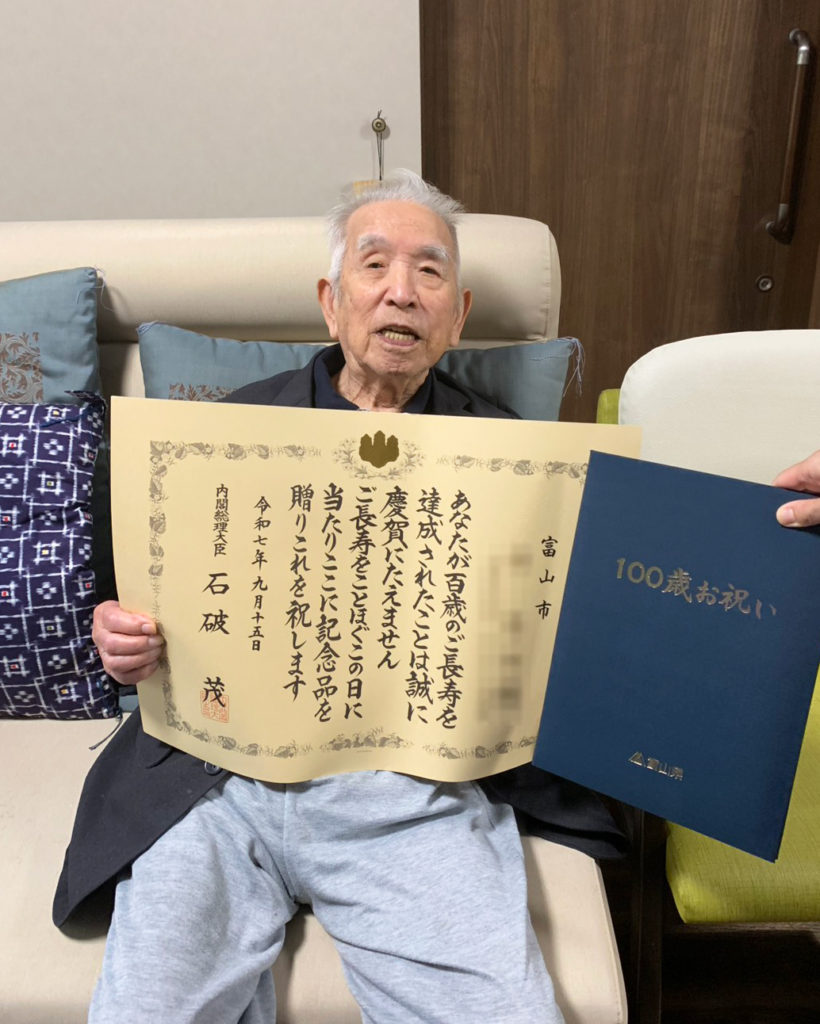 富山市
あなたが百歳のご長寿を
達成されたことは誠に
慶賀にたえません
ご長寿をことほぐこの日に
当たりここに記念品を
贈りこれを祝します
令和七年九月十五日
内閣総理大臣 石破 茂
100歳お祝い
富山県